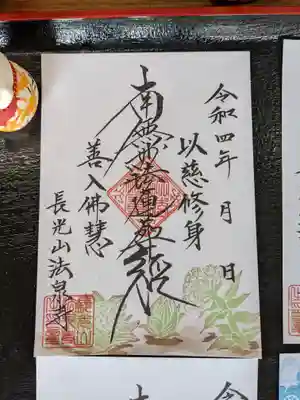 令和四年 月 日
以慈修身
南無妙法蓮華經
善入佛慧
長光山法泉寺